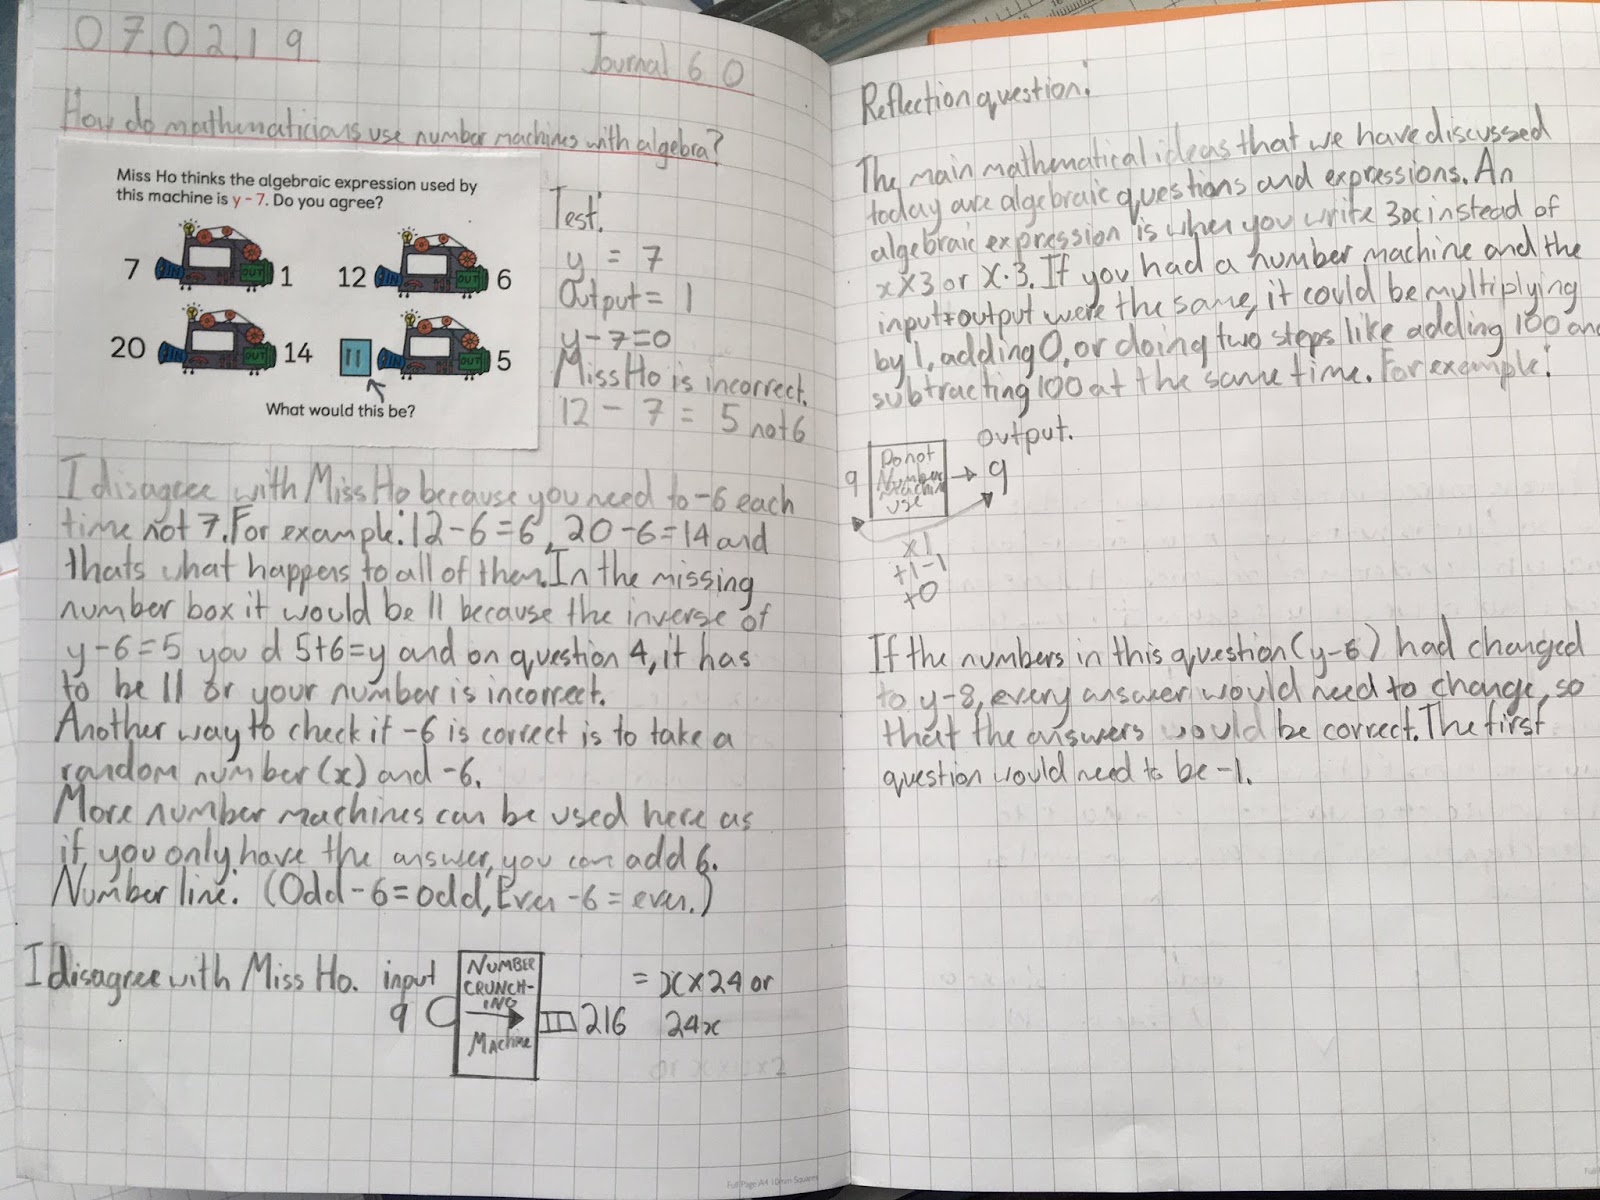 07.02.19
Journal 60
How do mathematicians use number machines with algebra?
Miss Ho thinks the algebraic expression used by
this machine is y - 7. Do you agree?
7 IN OUT 1 12 IN OUT 6
20 IN OUT 14 11 IN OUT 5
What would this be?
Test:
y = 7
Output = 1
y-7=0
Miss Ho is incorrect.
12 - 7 = 5 not 6
I disagree with Miss Ho because you need to -6 each
time not 7. For example: 12-6=6, 20-6=14 and
thats what happens to all of them. In the missing
number box it would be 11 because the inverse of
y-6=5 you d 5+6=y and on question 4, it has
to be 11 or your number is incorrect.
Another way to check if -6 is correct is to take a
random number (x) and -6.
More number machines can be used here as
if you only have the answer, you can add 6.
Number line: (Odd - 6 = odd, Even - 6 = even.)
I disagree with Miss Ho. input
9
NUMBER
CRUNCH-
ING
MACHINE
216
= x×24 or
24x
Reflection question:
The main mathematical ideas that we have discussed
today are algebraic questions and expressions. An
algebraic expression is when you write 3x instead of
x×3 or x·3. If you had a number machine and the
input+output were the same, it could be multiplying
by 1, adding 0, or doing two steps like adding 100 and
subtracting 100 at the same time. For example:
output.
9
Do not
Number
Machine
use
9
×1
+1-1
+0
If the numbers in this question (y-6) had changed
to y-8, every answer would need to change, so
that the answers would be correct. The first
question would need to be -1.